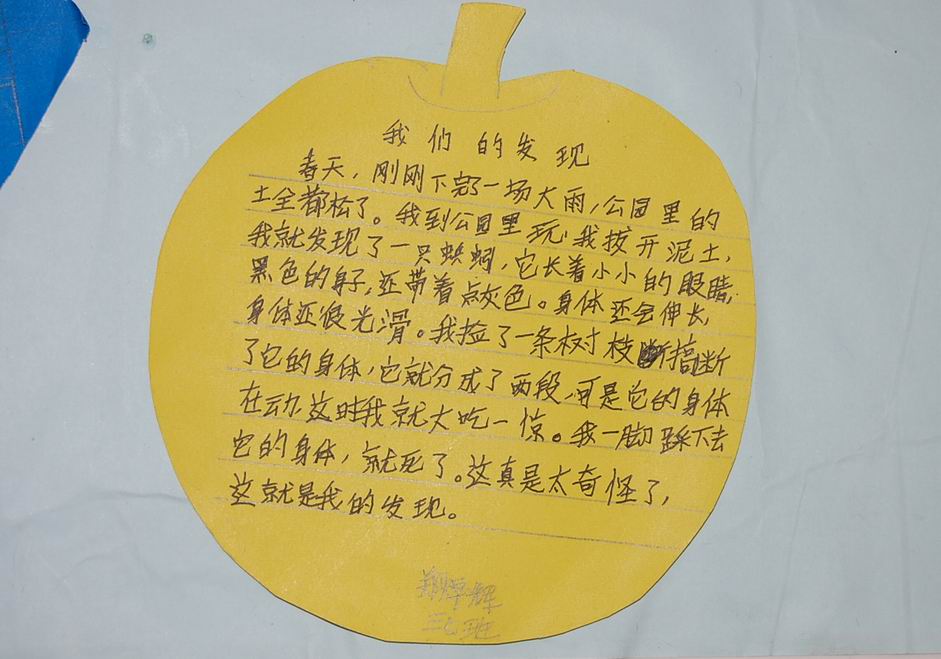 我们的发现
春天，刚刚下完了一场大雨，公园里的
土全都松了。我到公园里玩，我拔开泥土，
我就发现了一只蚯蚓，它长着小小的眼睛，
黑色的身子，还带着点灰色。身体还会伸长，
身体还很光滑。我捡了一条树枝搞断
了它的身体，它就分成了两段，可是它的身体
在动，这时我就大吃一惊。我一脚踩下去
它的身体，就死了。这真是太奇怪了，
这就是我的发现。
三七班